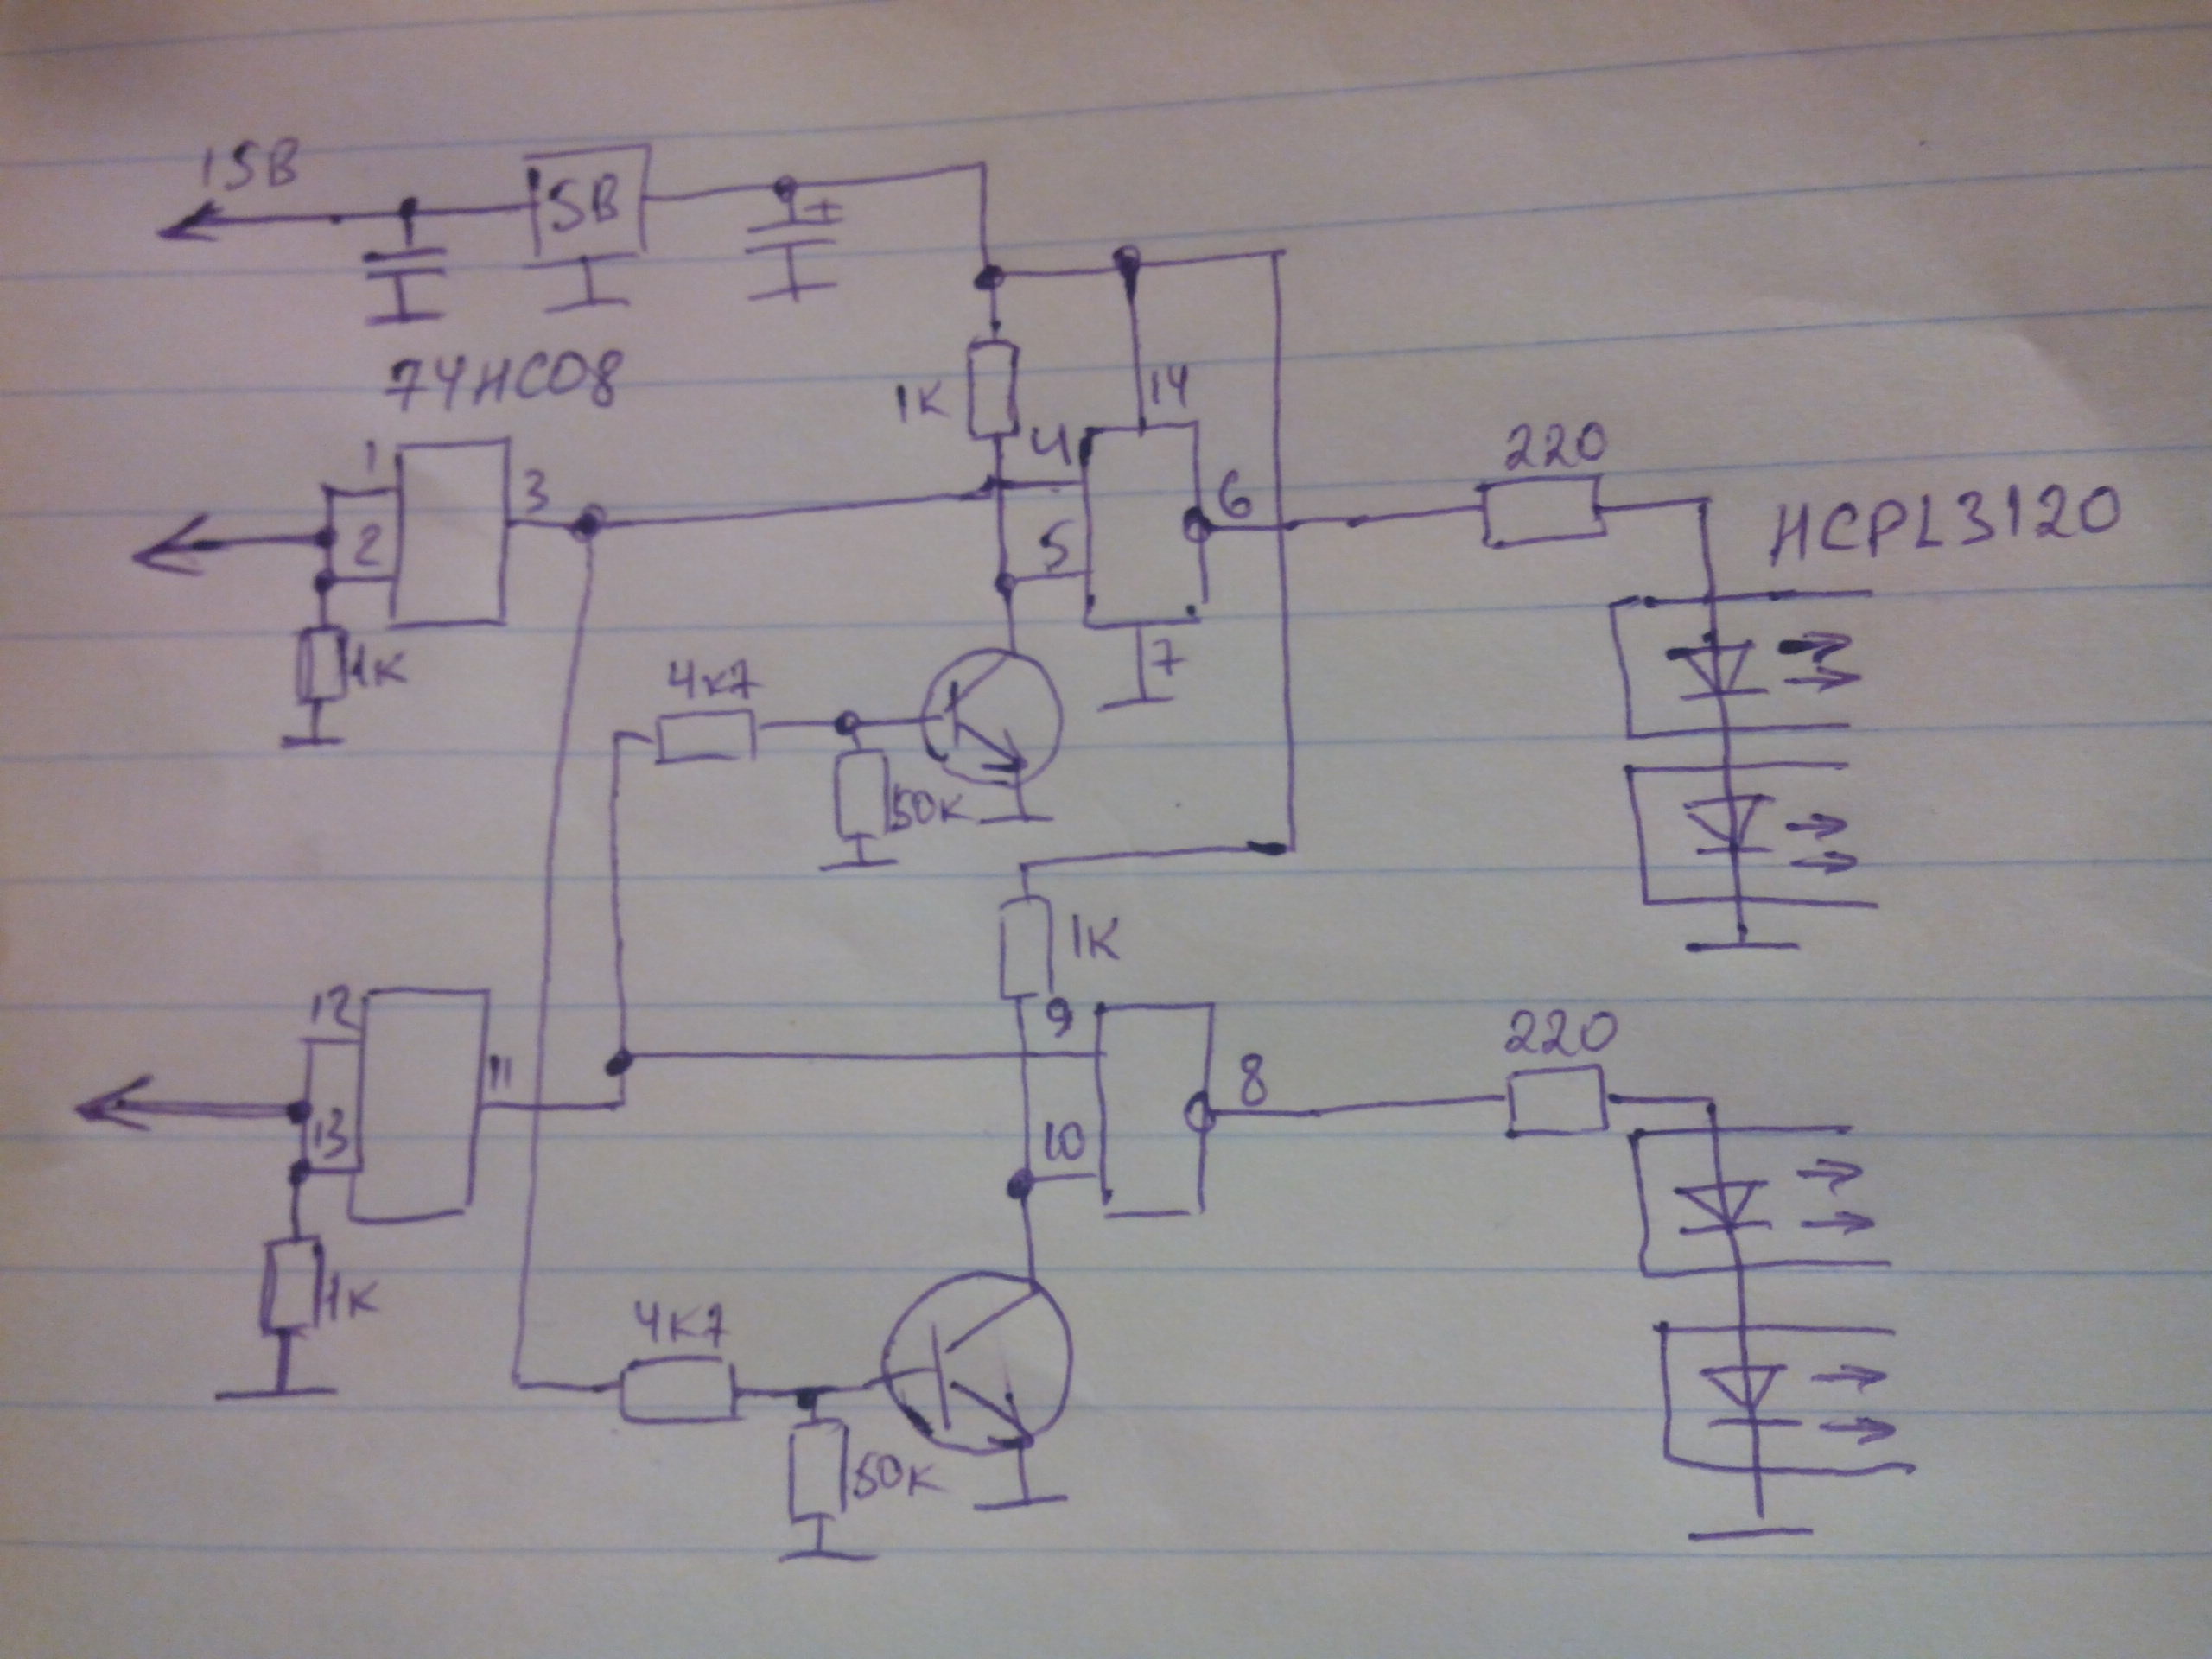 15В
5В
+
74HC08
1K
14
4
1
3
220
2
5
6
HCPL3120
1K
4K7
7
50K
1K
9
12
11
220
8
13
10
1K
4K7
50K